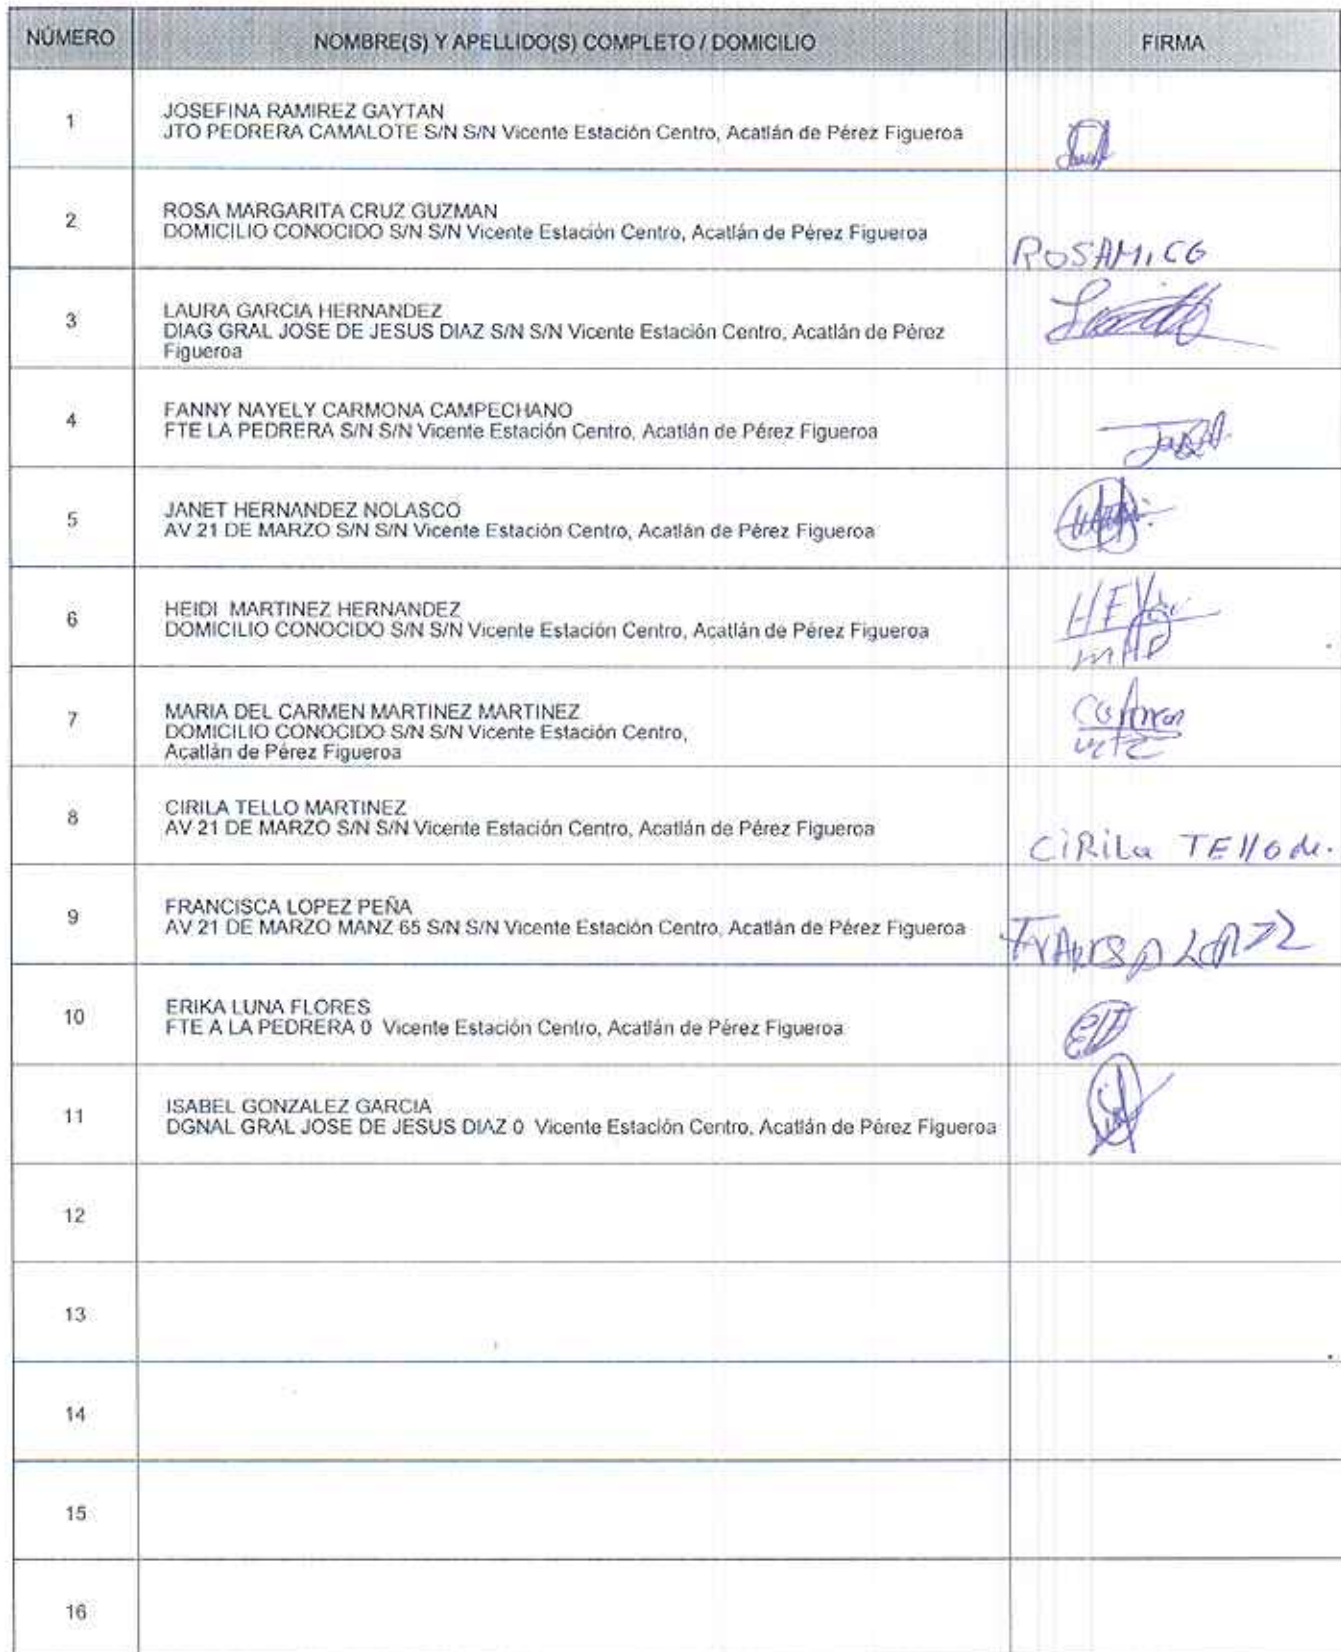 NÚMERO NOMBRE(S) Y APELLIDO(S) COMPLETO / DOMICILIO FIRMA
1 JOSEFINA RAMIREZ GAYTAN
JTO PEDRERA CAMALOTE S/N S/N Vicente Estación Centro, Acatlán de Pérez Figueroa
2 ROSA MARGARITA CRUZ GUZMAN
DOMICILIO CONOCIDO S/N S/N Vicente Estación Centro, Acatlán de Pérez Figueroa
ROSAM,CG
3 LAURA GARCIA HERNANDEZ
DIAG GRAL JOSE DE JESUS DIAZ S/N S/N Vicente Estación Centro, Acatlán de Pérez
Figueroa
4 FANNY NAYELY CARMONA CAMPECHANO
FTE LA PEDRERA S/N S/N Vicente Estación Centro, Acatlán de Pérez Figueroa
5 JANET HERNANDEZ NOLASCO
AV 21 DE MARZO S/N S/N Vicente Estación Centro, Acatlán de Pérez Figueroa
6 HEIDI MARTINEZ HERNANDEZ
DOMICILIO CONOCIDO S/N S/N Vicente Estación Centro, Acatlán de Pérez Figueroa
7 MARIA DEL CARMEN MARTINEZ MARTINEZ
DOMICILIO CONOCIDO S/N S/N Vicente Estación Centro,
Acatlán de Pérez Figueroa
8 CIRILA TELLO MARTINEZ
AV 21 DE MARZO S/N S/N Vicente Estación Centro, Acatlán de Pérez Figueroa
CiRiLa TEllo
9 FRANCISCA LOPEZ PEÑA
AV 21 DE MARZO MANZ 65 S/N S/N Vicente Estación Centro, Acatlán de Pérez Figueroa
10 ERIKA LUNA FLORES
FTE A LA PEDRERA 0 Vicente Estación Centro, Acatlán de Pérez Figueroa
11 ISABEL GONZALEZ GARCIA
DGNAL GRAL JOSE DE JESUS DIAZ 0 Vicente Estación Centro, Acatlán de Pérez Figueroa
12
13
14
15
16